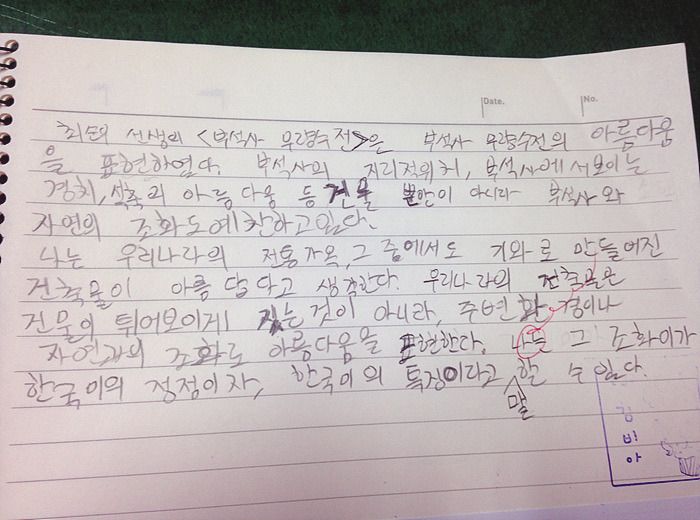 Date.
No.
최순의 선생의 <부석사 무량수전>은 부석사 무량수전의 아름다움
을 표현하였다. 부석사의 지리적위치, 부석사에서보이는
경치, 석축의 아름다움 등 건물 뿐만이 아니라 부석사와
자연의 조화도예찬하고있다.
나는 우리나라의 전통가옥, 그 중에서도 기와로 만들어진
건축물이 아름답다고 생각한다. 우리나라의 건축물은
건물이 튀어보이게 짓는 것이 아니라, 주변 환경이나
자연과의 조화로 아름다움을 표현한다. 나는 그 조화미가
한국미의 정점이자, 한국미의 특징이라고 할 수 있다.
말
김
비
아